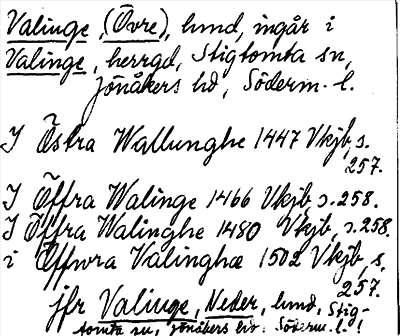 Valinge, (Övre), hmd, ingår i
Valinge, herrgd, Stigtomta sn,
Jönåkers hd, Söderm. l.
I Östra Wallunghe 1447 Vkjb, s.
257.
I Öffra Walinge 1466 Vkjb s. 258.
I Öffra Walinghe 1480 Vkjb, s. 258.
i Öffwra Valinghæ 1502 Vkjb, s,
257.
jfr Valinge, Neder, hmd, Stig-
tomta sn, Jönåkers hd. Söderm. l.!